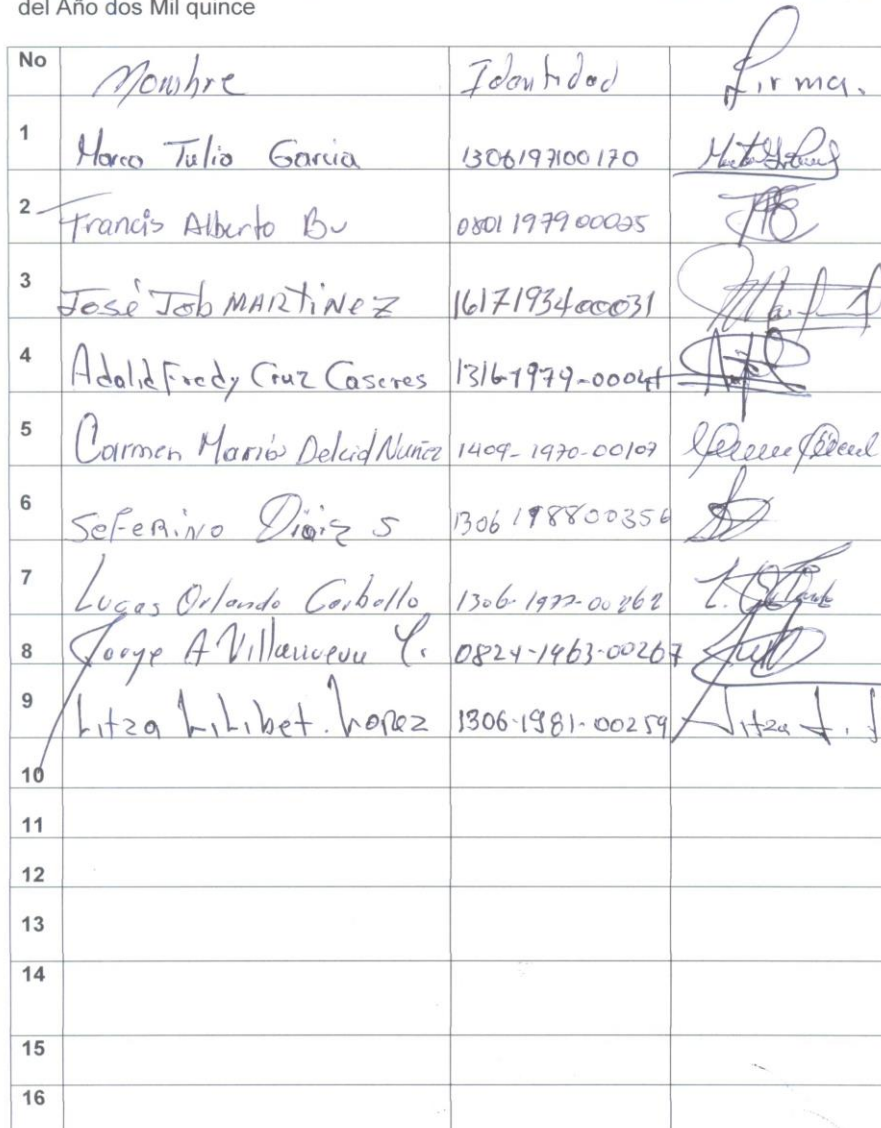 del Año dos Mil quince
No Nombre Identidad firma.
1 Marco Tulio Garcia 1306197100170
2 Francis Alberto Bu 0801197900025
3 José Job MARTINEZ 1617193400031
4 Adalid Fredy Cruz Caseres 1316-1979-00041
5 Carmen Mario Delcid Nuñez 1409-1970-00107
6 SeFeRiNo S 1306198800356
7 Lucas Orlando Carballo 1306-1977-00262
8 Jorge A Villanueva Y. 0824-1963-00267
9 Litza Lilibet. Lopez 1306-1981-00259 Litza L.
10
11
12
13
14
15
16